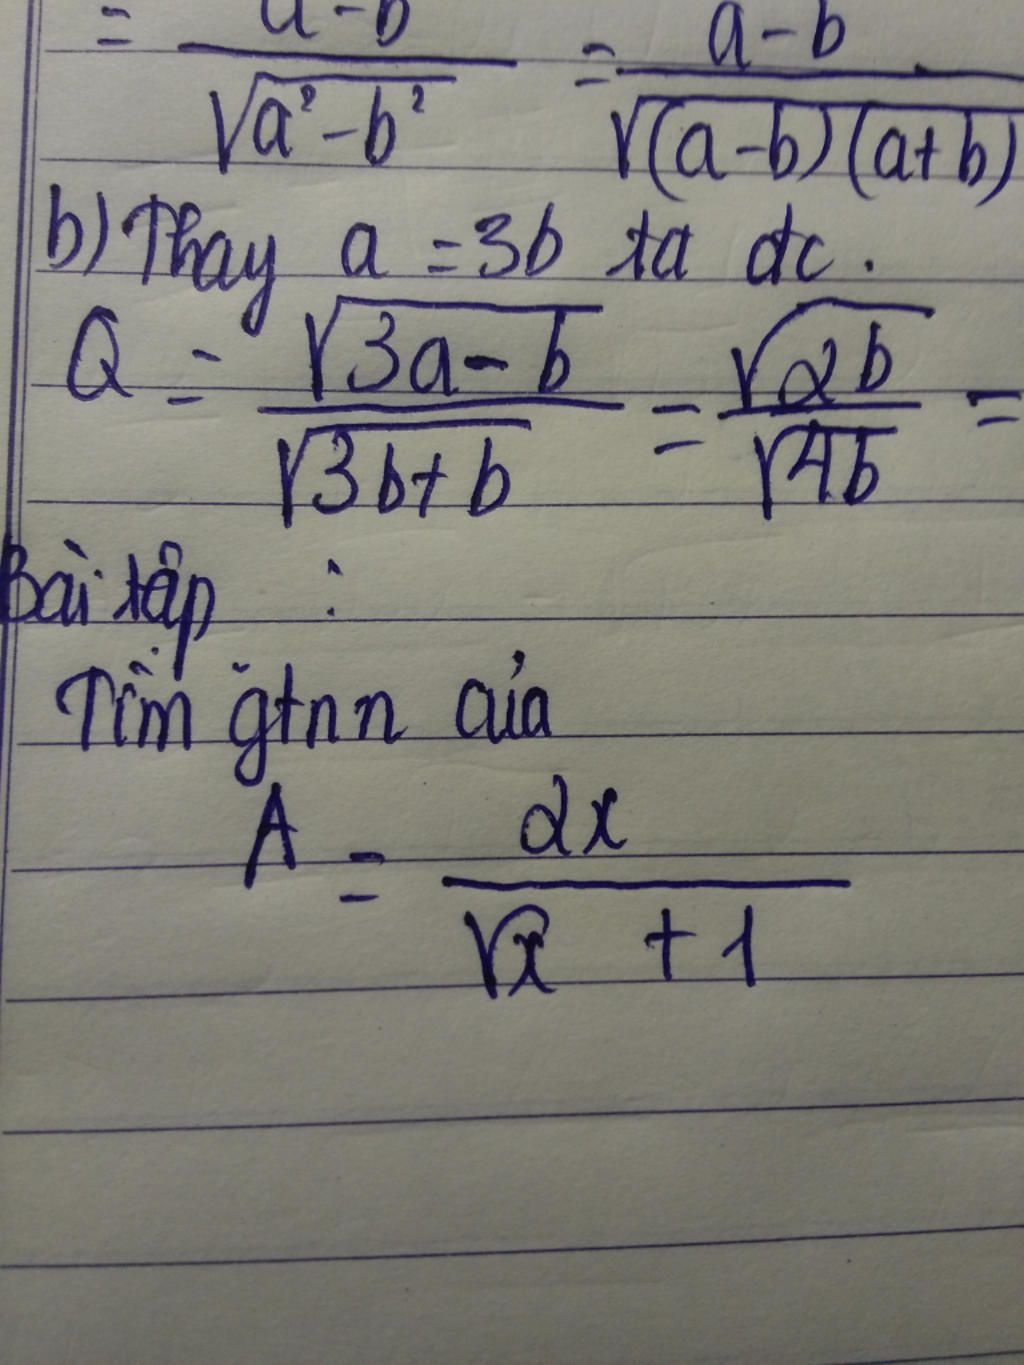 = a-b / √a²-b² = a-b / √(a-b)(a+b)
b) Thay a = 3b ta dc.
Q = √3a-b / √3b+b = √2b / √4b =
Bài tập :
Tìm gtnn của
A = 2x / √x + 1